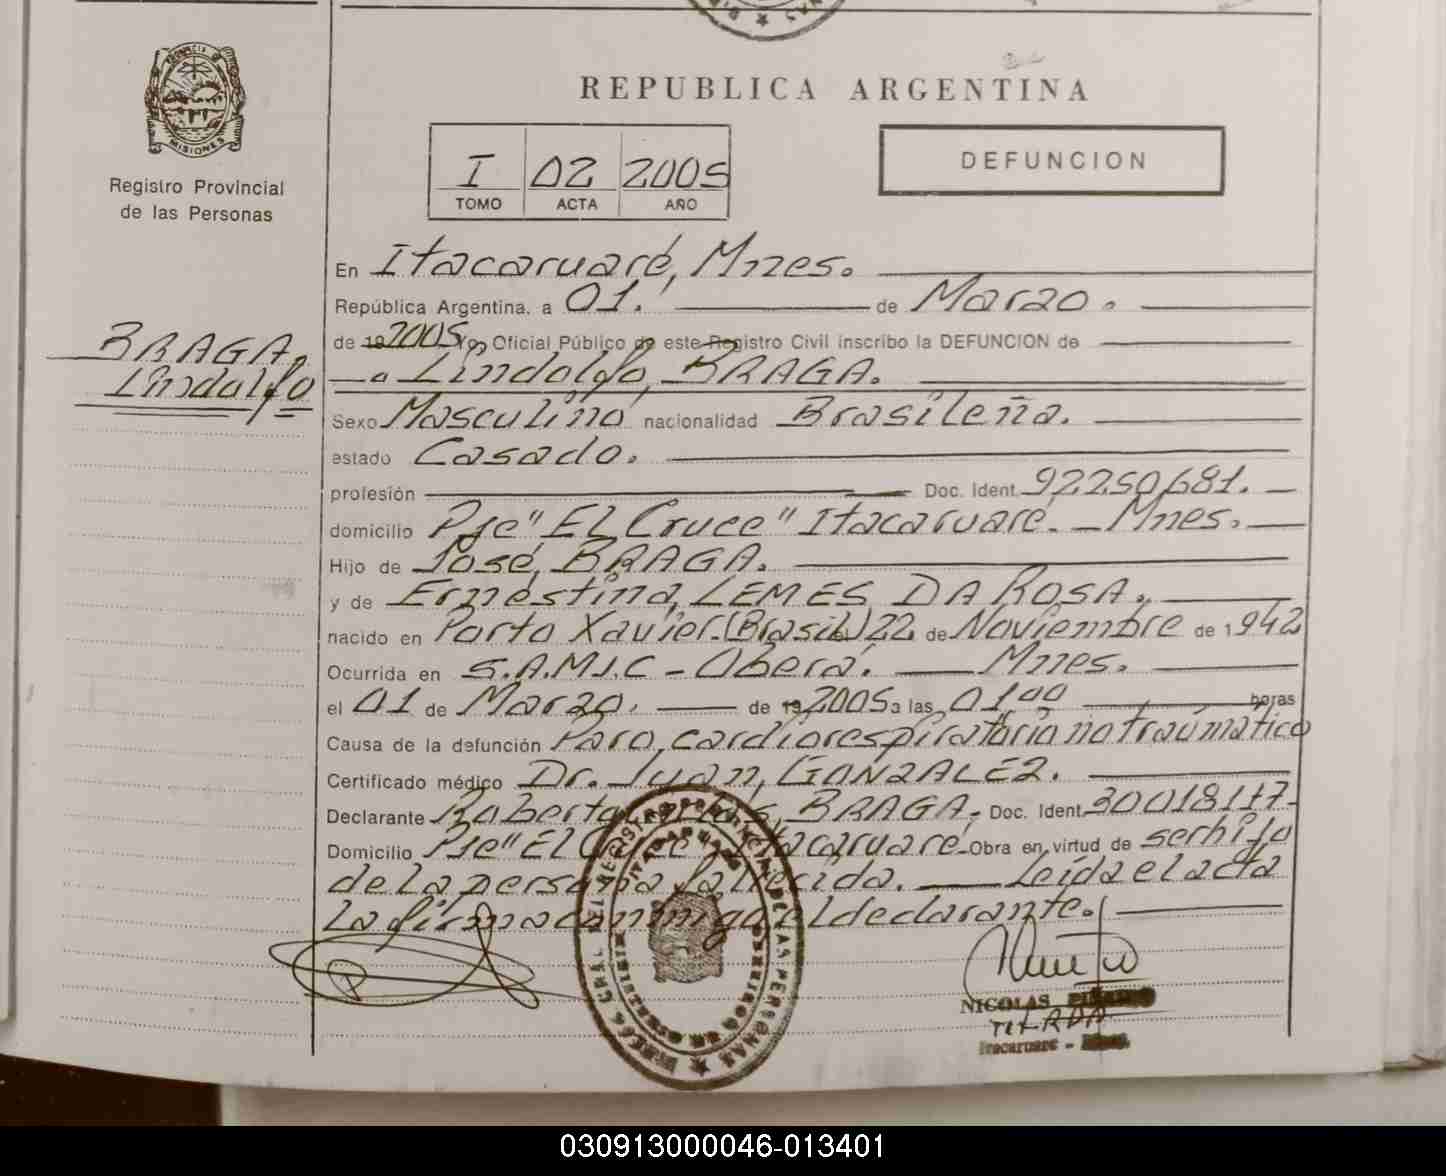 REPUBLICA ARGENTINA
PROVINCIA DE MISIONES
Registro Provincial
de las Personas
I 02 2005
TOMO ACTA AÑO
DEFUNCION
BRAGA,
Lindolfo
En Itacaruaré, Mnes.
República Argentina, a 01. de Marzo.
de 19 2005 Yo, Oficial Público de este Registro Civil inscribo la DEFUNCION de
Lindolfo, BRAGA.
Sexo Masculino nacionalidad Brasileña.
estado Casado.
profesión Doc. Ident. 92250681.
domicilio Pje "El Cruce" Itacaruaré. - Mnes.
Hijo de José, BRAGA.
y de Ernestina, LEMES DA ROSA.
nacido en Porto Xavier. (Brasil) el 22 de Noviembre de 1942
Ocurrida en S.A.M.I.C - Oberá. Mnes.
el 01 de Marzo. de 19 2005 a las 01:00 horas
Causa de la defunción Paro, cardiorespiratorio no traumático
Certificado médico Dr. Juan, GONZALEZ.
Declarante Roberto BRAGA. Doc. Ident. 30018117-
Domicilio Pje "El Cruce" Itacaruaré. Obra en virtud de ser hijo
de la persona fallecida. Leída el acta
La firma conmigo el declarante.
NICOLAS
TITULAR
Itacaruare - Mnes.
030913000046-013401